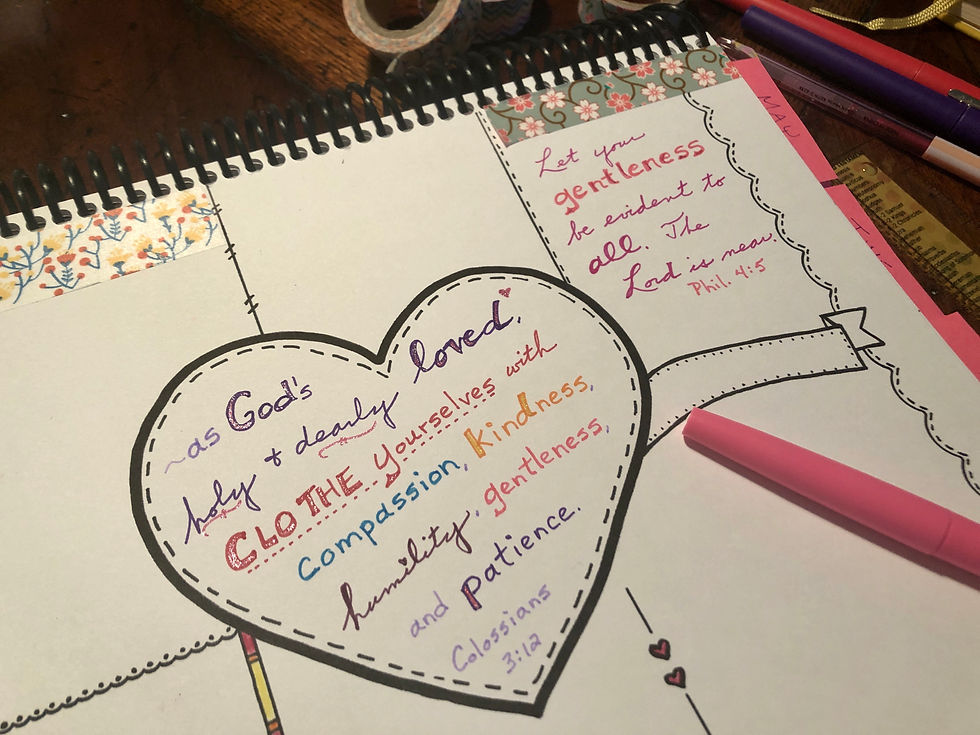 ~as God's
holy + dearly loved,
CLOTHE yourselves with
compassion, kindness,
humility, gentleness,
and patience.
Colossians
3:12
Let your
gentleness
be evident to
all. The
Lord is near.
Phil. 4:5